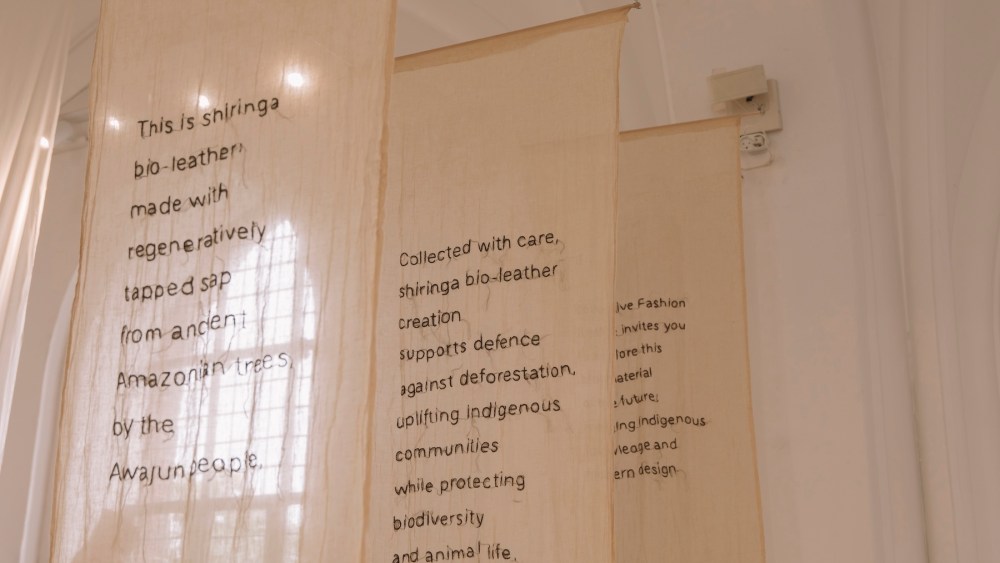 This is shiringa
bio-leather,
made with
regeneratively
tapped sap
from ancient
Amazonian trees,
by the
Awajun people.
Collected with care,
shiringa bio-leather
creation
supports defence
against deforestation,
uplifting indigenous
communities
while protecting
biodiversity
and animal life.
Fashion
invites you
this
future;
indigenous
and
design.